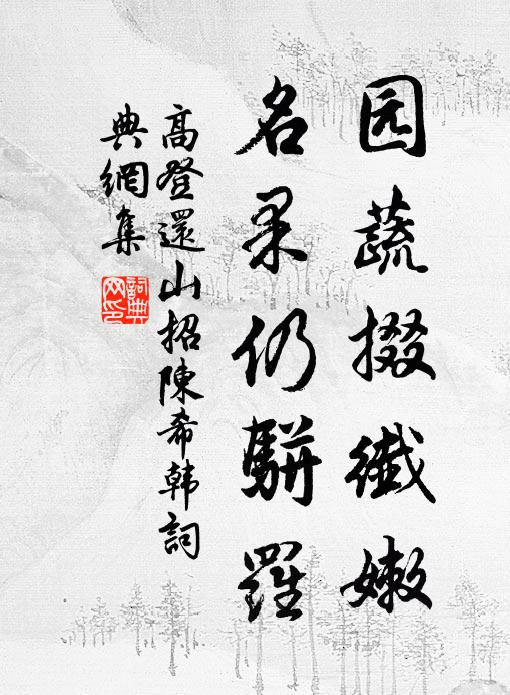 园蔬掇纖嫩
名果仍駢羅
高登還山招陳希韩詞
典網集
詞典
网印